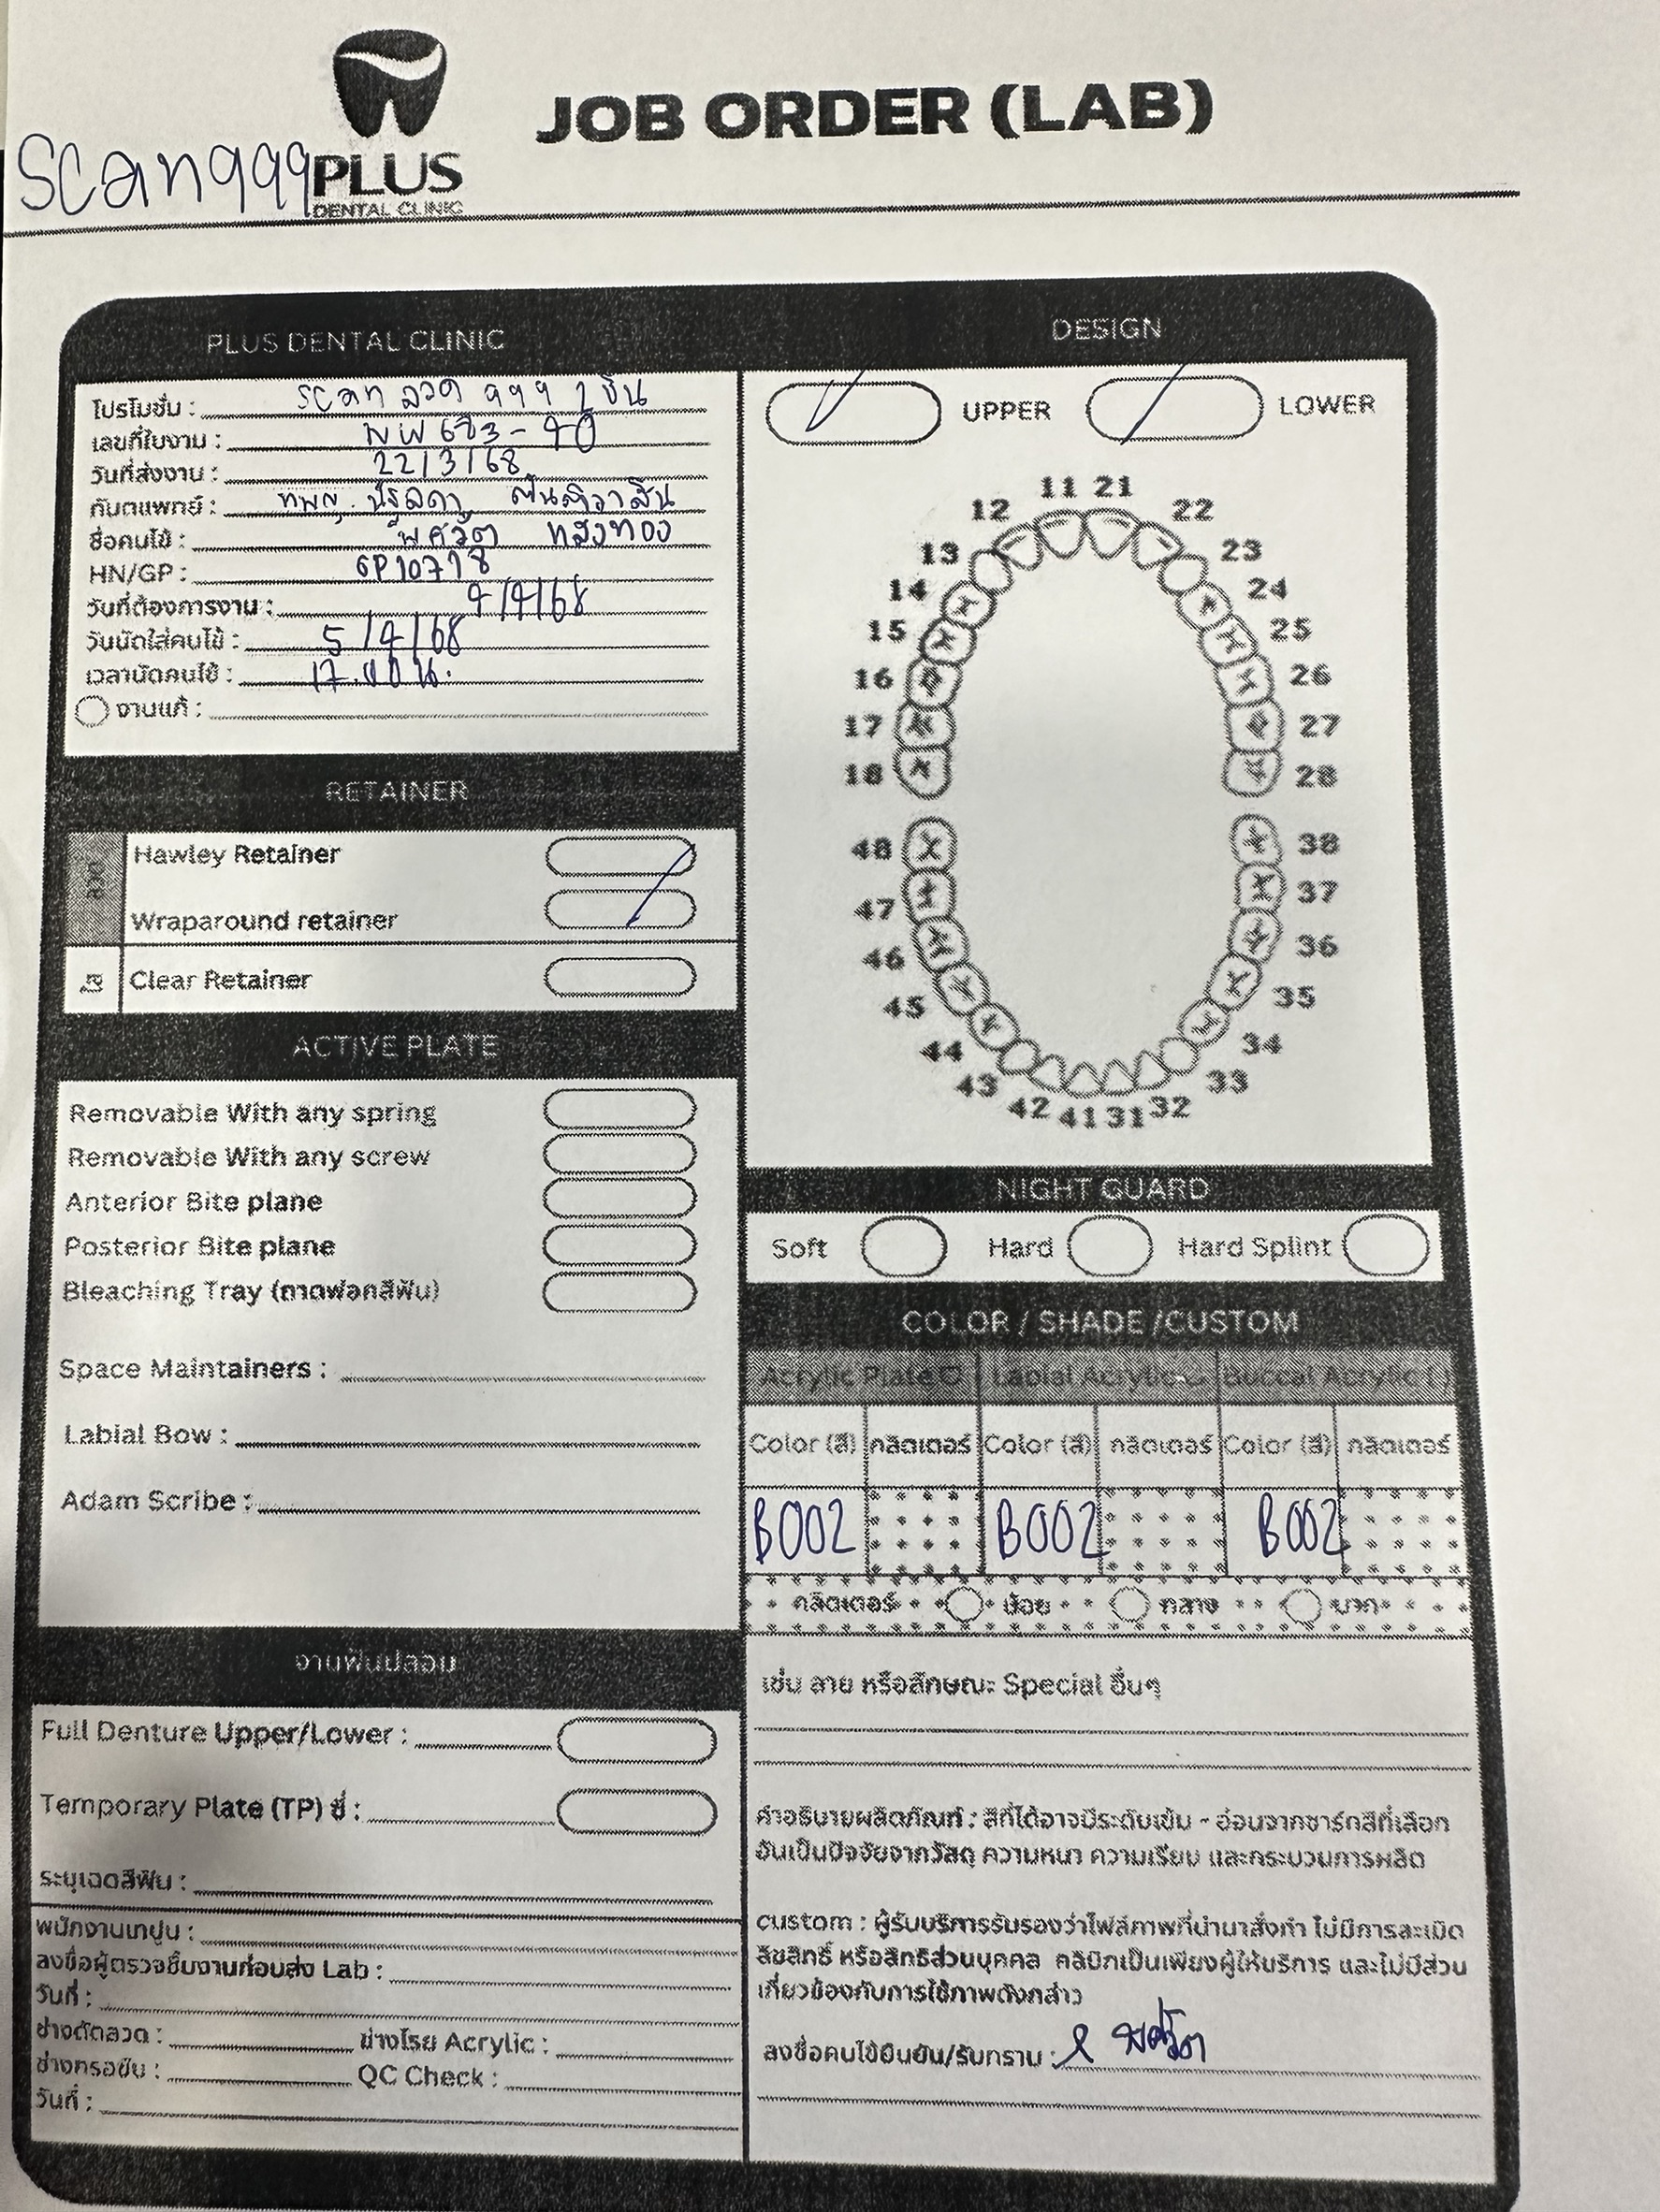 JOB ORDER (LAB)
Scan999
PLUS
DENTAL CLINIC
PLUS DENTAL CLINIC
โปรโมชั่น : Scan ลวด 999 2 ชิ้น
เลขที่ใบงาน : NW683-40
วันที่ส่งงาน : 22/3/68
ทันตแพทย์ : ทพญ.
ชื่อคนไข้ : พิศวัต
HN/GP : GP10718
วันที่ต้องการงาน : 4/4/68
วันนัดใส่คนไข้ : 5/4/68
เวลานัดคนไข้ : 17.00 น.
งานแก้ :
RETAINER
ลวด
Hawley Retainer
Wraparound retainer
ใส
Clear Retainer
ACTIVE PLATE
Removable With any spring
Removable With any screw
Anterior Bite plane
Posterior Bite plane
Bleaching Tray (ถาดฟอกสีฟัน)
Space Maintainers :
Labial Bow :
Adam Scribe :
งานฟันปลอม
Full Denture Upper/Lower :
Temporary Plate (TP) ซี่ :
ระบุเฉดสีฟัน :
พนักงานเทปูน :
ลงชื่อผู้ตรวจชิ้นงานก่อนส่ง Lab :
วันที่ :
ช่างดัดลวด : ช่างโรย Acrylic :
ช่างกรอขัด : QC Check :
วันที่ :
DESIGN
UPPER LOWER
11 21
12 22
13 23
14 24
15 25
16 26
17 27
18 28
48 38
47 37
46 36
45 35
44 34
43 33
42 41 31 32
NIGHT GUARD
Soft Hard Hard Splint
COLOR / SHADE /CUSTOM
Acrylic Plate Labial Acrylic Buccal Acrylic
Color (สี) กลิตเตอร์ Color (สี) กลิตเตอร์ Color (สี) กลิตเตอร์
B002 B002 B002
กลิตเตอร์ น้อย กลาง มาก
เช่น ลาย หรือลักษณะ Special อื่นๆ
คำอธิบายผลิตภัณฑ์ : สีที่ได้อาจมีระดับเข้ม - อ่อนจากชาร์ทสีที่เลือก
อันเป็นปัจจัยจากวัสดุ ความหนา ความเรียบ และกระบวนการผลิต
custom : ผู้รับบริการรับรองว่าไฟล์ภาพที่นำมาสั่งทำ ไม่มีการละเมิด
ลิขสิทธิ์ หรือสิทธิส่วนบุคคล คลินิกเป็นเพียงผู้ให้บริการ และไม่มีส่วน
เกี่ยวข้องกับการใช้ภาพดังกล่าว
ลงชื่อคนไข้ยืนยัน/รับทราบ :